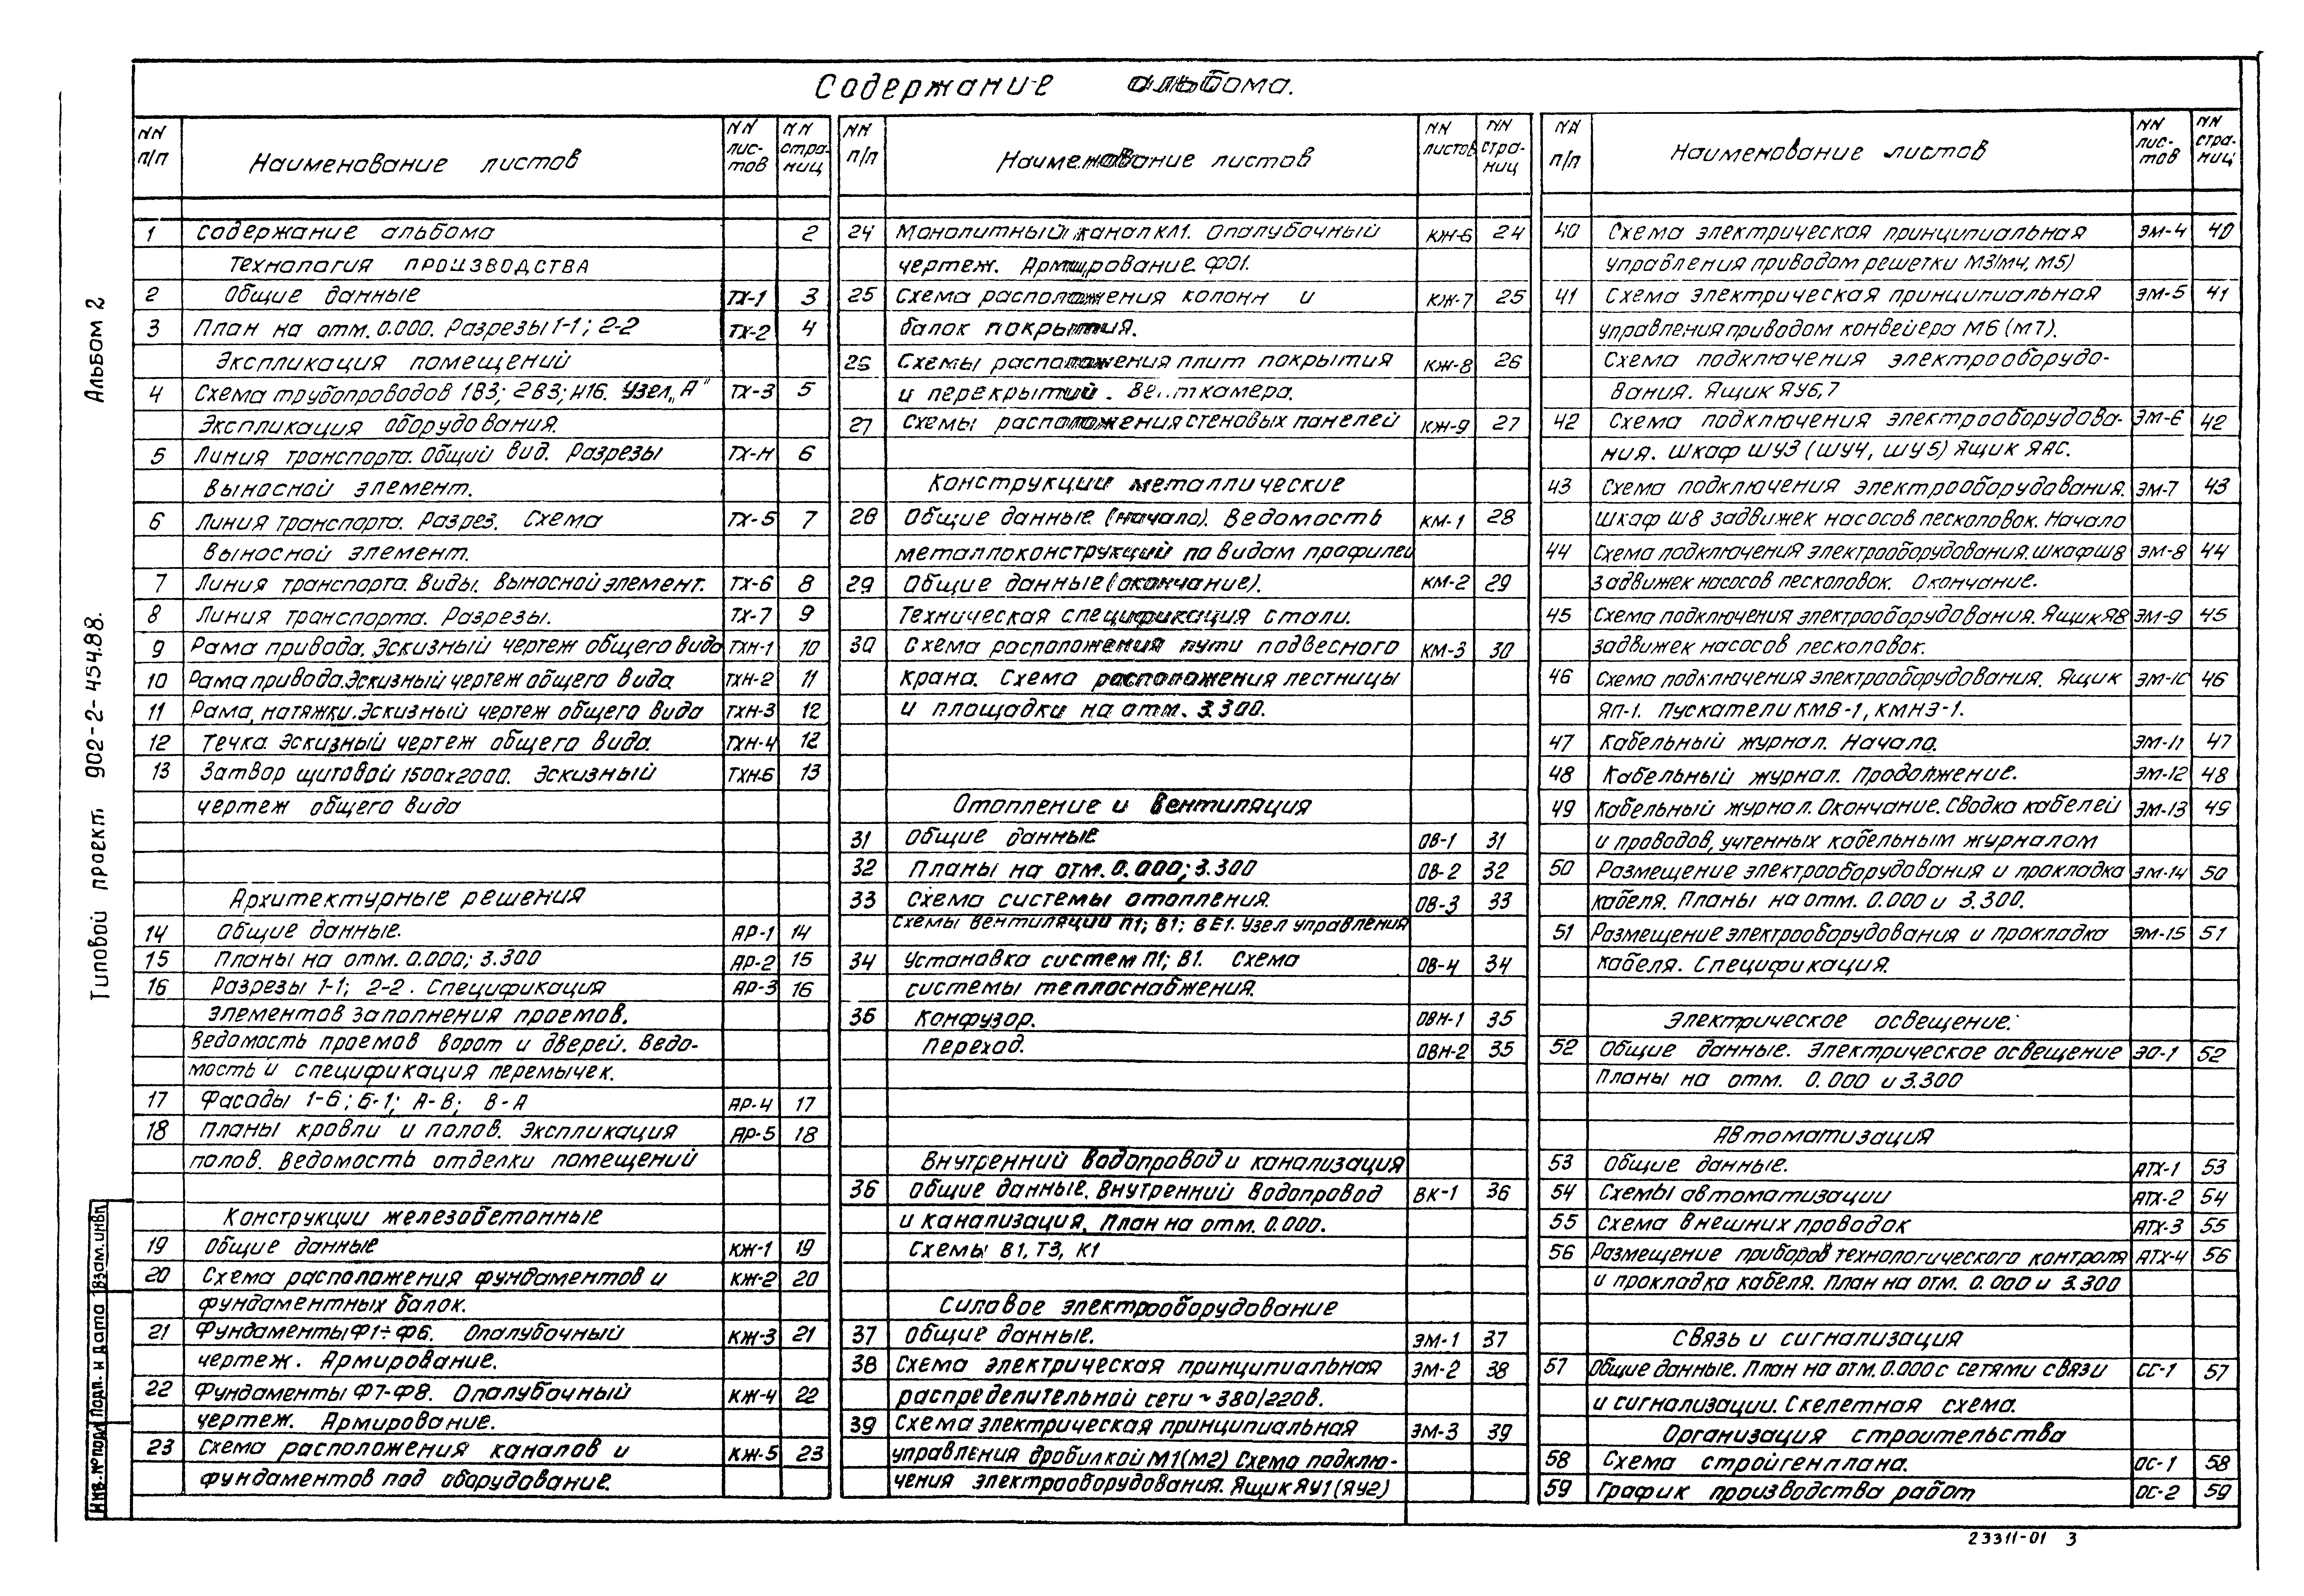 Содержание альбома.
Альбом 2
Типовой проект 902-2-454.88.
Взам.инв.
Подп. и дата
Инв.№подл
NN п/п Наименование листов NN лис-тов NN стра-ниц
1 Содержание альбома 2
Технология производства
2 Общие данные ТХ-1 3
3 План на отм. 0.000. Разрезы 1-1; 2-2 ТХ-2 4
Экспликация помещений
4 Схема трубопроводов 1В3; 2В3; Н16. Узел „А" ТХ-3 5
Экспликация оборудования.
5 Линия транспорта. Общий вид. Разрезы ТХ-Н 6
Выносной элемент.
6 Линия транспорта. Разрез. Схема ТХ-5 7
Выносной элемент.
7 Линия транспорта. Виды. Выносной элемент. ТХ-6 8
8 Линия транспорта. Разрезы. ТХ-7 9
9 Рама привода. Эскизный чертеж общего вида ТХН-1 10
10 Рама привода. Эскизный чертеж общего вида. ТХН-2 11
11 Рама натяжки. Эскизный чертеж общего вида ТХН-3 12
12 Течка. Эскизный чертеж общего вида. ТХН-4 12
13 Затвор щитовой 1500х2000. Эскизный ТХН-6 13
чертеж общего вида
Архитектурные решения
14 Общие данные. АР-1 14
15 Планы на отм. 0.000; 3.300 АР-2 15
16 Разрезы 1-1; 2-2. Спецификация АР-3 16
элементов заполнения проемов.
Ведомость проемов ворот и дверей. Ведо-
мость и спецификация перемычек.
17 Фасады 1-6; 6-1; А-В; В-А АР-4 17
18 Планы кровли и полов. Экспликация АР-5 18
полов. Ведомость отделки помещений
Конструкции железобетонные
19 Общие данные КЖ-1 19
20 Схема расположения фундаментов и КЖ-2 20
фундаментных балок.
21 Фундаменты Ф1÷Ф6. Опалубочный КЖ-3 21
чертеж. Армирование.
22 Фундаменты Ф7-Ф8. Опалубочный КЖ-4 22
чертеж. Армирование.
23 Схема расположения каналов и КЖ-5 23
фундаментов под оборудование.
NN п/п Наименование листов NN листов NN стра-ниц
24 Монолитный канал КЛ1. Опалубочный КЖ-6 24
чертеж. Армирование. Ф01.
25 Схема расположения колонн и КЖ-7 25
балок покрытия.
26 Схемы расположения плит покрытия КЖ-8 26
и перекрытий. Венткамера.
27 Схемы расположения стеновых панелей КЖ-9 27
Конструкции металлические
28 Общие данные (начало). Ведомость КМ-1 28
металлоконструкций по видам профилей
29 Общие данные (окончание). КМ-2 29
Техническая спецификация стали.
30 Схема расположения пути подвесного КМ-3 30
крана. Схема расположения лестницы
и площадки на отм. 3.300.
Отопление и вентиляция
31 Общие данные ОВ-1 31
32 Планы на отм. 0.000; 3.300 ОВ-2 32
33 Схема системы отопления. ОВ-3 33
Схемы вентиляции П1; В1; ВЕ1. Узел управления
34 Установка систем П1; В1. Схема ОВ-4 34
системы теплоснабжения.
36 Конфузор. ОВН-1 35
Переход. ОВН-2 35
Внутренний водопровод и канализация
36 Общие данные. Внутренний водопровод ВК-1 36
и канализация. План на отм. 0.000.
Схемы В1, Т3, К1
Силовое электрооборудование
37 Общие данные. ЭМ-1 37
38 Схема электрическая принципиальная ЭМ-2 38
распределительной сети ~ 380/220в.
39 Схема электрическая принципиальная ЭМ-3 39
управления дробилкой М1(М2) Схема подклю-
чения электрооборудования. Ящик ЯУ1 (ЯУ2)
NN п/п Наименование листов NN лис-тов NN стра-ниц
40 Схема электрическая принципиальная ЭМ-4 40
управления приводом решетки М3(М4, М5)
41 Схема электрическая принципиальная ЭМ-5 41
управления приводом конвейера М6 (М7).
Схема подключения электрооборудо-
вания. Ящик ЯУ6,7
42 Схема подключения электрооборудова- ЭМ-6 42
ния. Шкаф ШУ3 (ШУ4, ШУ5) Ящик ЯАС.
43 Схема подключения электрооборудования. ЭМ-7 43
Шкаф Ш8 задвижек насосов песколовок. Начало
44 Схема подключения электрооборудования. Шкаф Ш8 ЭМ-8 44
задвижек насосов песколовок. Окончание.
45 Схема подключения электрооборудования. Ящик Я8 ЭМ-9 45
задвижек насосов песколовок.
46 Схема подключения электрооборудования. Ящик ЭМ-10 46
ЯП-1. Пускатели КМВ-1, КМНЭ-1.
47 Кабельный журнал. Начало. ЭМ-11 47
48 Кабельный журнал. Продолжение. ЭМ-12 48
49 Кабельный журнал. Окончание. Сводка кабелей ЭМ-13 49
и проводов, учтенных кабельным журналом
50 Размещение электрооборудования и прокладка ЭМ-14 50
кабеля. Планы на отм. 0.000 и 3.300.
51 Размещение электрооборудования и прокладка ЭМ-15 51
кабеля. Спецификация.
Электрическое освещение.
52 Общие данные. Электрическое освещение ЭО-1 52
Планы на отм. 0.000 и 3.300
Автоматизация
53 Общие данные. АТХ-1 53
54 Схемы автоматизации АТХ-2 54
55 Схема внешних проводок АТХ-3 55
56 Размещение приборов технологического контроля АТХ-4 56
и прокладка кабеля. План на отм. 0.000 и 3.300
Связь и сигнализация
57 Общие данные. План на отм. 0.000 с сетями связи СС-1 57
и сигнализации. Скелетная схема.
Организация строительства
58 Схема стройгенплана. ОС-1 58
59 График производства работ ОС-2 59
23311-01 3